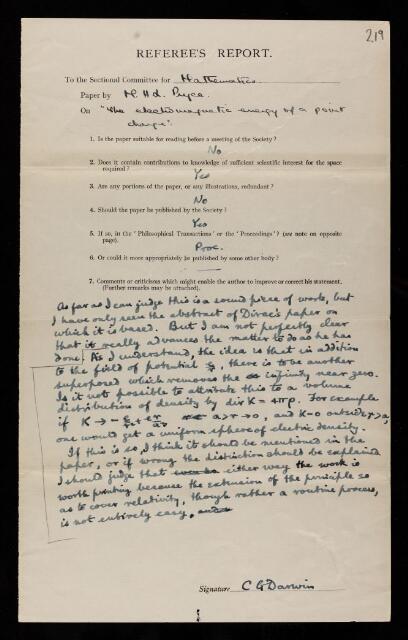 219
REFEREE'S REPORT.
To the Sectional Committee for Mathematics
Paper by M. H. L. Pryce.
On "The electromagnetic energy of a point
charge".
1. Is the paper suitable for reading before a meeting of the Society?
No
2. Does it contain contributions to knowledge of sufficient scientific interest for the space
required?
Yes
3. Are any portions of the paper, or any illustrations, redundant?
No
4. Should the paper be published by the Society?
Yes
5. If so, in the 'Philosophical Transactions' or the 'Proceedings'? (see note on opposite
page).
Proc.
6. Or could it more appropriately be published by some other body?
7. Comments or criticisms which might enable the author to improve or correct his statement.
(Further remarks may be attached).
As far as I can judge this is a sound piece of work, but
I have only seen the abstract of Dirac's paper on
which it is based. But I am not perfectly clear
that it really advances the matter to do as he has
done. As I understand, the idea is that in addition
to the field of potential e/r, there is to be another
superposed which removes the infinity near zero.
Is it not possible to attribute this to a volume
distribution of density by div K = 4πρ. For example
if K → a>r>0, and K=0 outside r>a,
one would get a uniform sphere of electric density.
If this is so, I think it should be mentioned in the
paper, or if wrong the distinction should be explained
I should judge that either way the work is
worth printing because the extension of the principle so
as to cover relativity, though rather a routine process,
is not entirely easy,
Signature C G Darwin